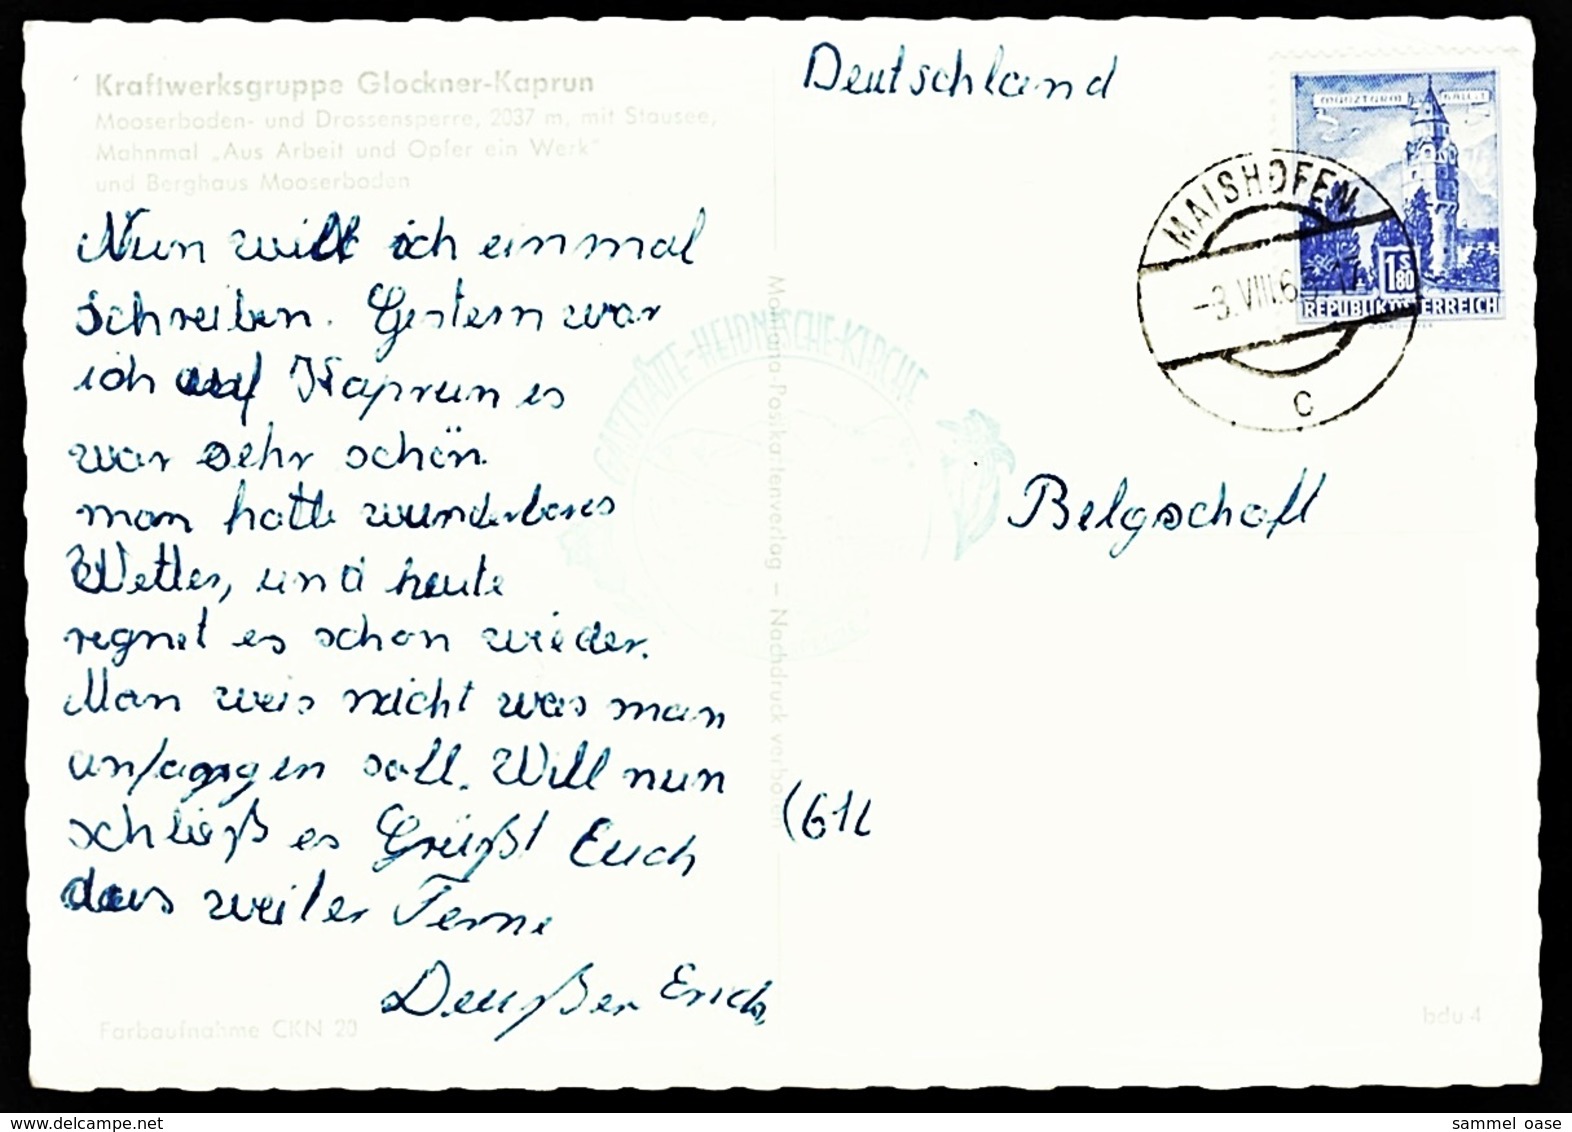 Kraftwerksgruppe Glockner-Kaprun
Mooserboden- und Drossensperre, 2037 m, mit Stausee,
Mahnmal „Aus Arbeit und Opfer ein Werk"
und Berghaus Mooserboden
Nun will ich einmal
schreiben. Gestern war
ich auf Kaprun es
war sehr schön.
man hatte wunderbares
Wetter, und heute
regnet es schon wieder.
Man weis nicht was man
anfangen soll. Will nun
schließ es Grüßt Euch
aus weiter Ferne
Deußer Erich
Farbaufnahme CKN 20
GASTSTÄTTE-HEIDNISCHE-KIRCHE
Montana-Postkartenvertag – Nachdruck verboten
Deutschland
MÜNZTURM HALL I.
1 S 80
REPUBLIK ÖSTERREICH
MAISHOFEN
-3.VIII.6 17
C
Belgschaft
(61L
bdu 4
sammel oase